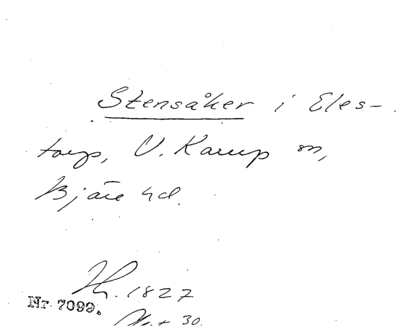 Stensåker i Eles-
torp, V. Karup sn,
Bjäre hd.
Th. 1827
Nr 7099.
30.